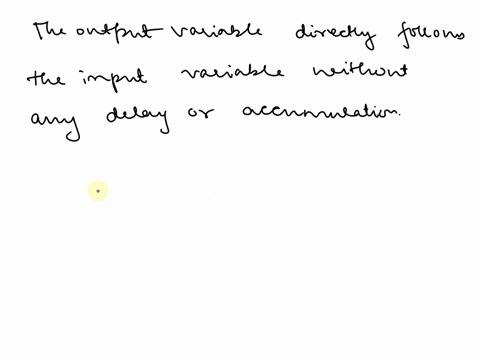 The output variable directly follows
the input variable without
any delay or accumulation.